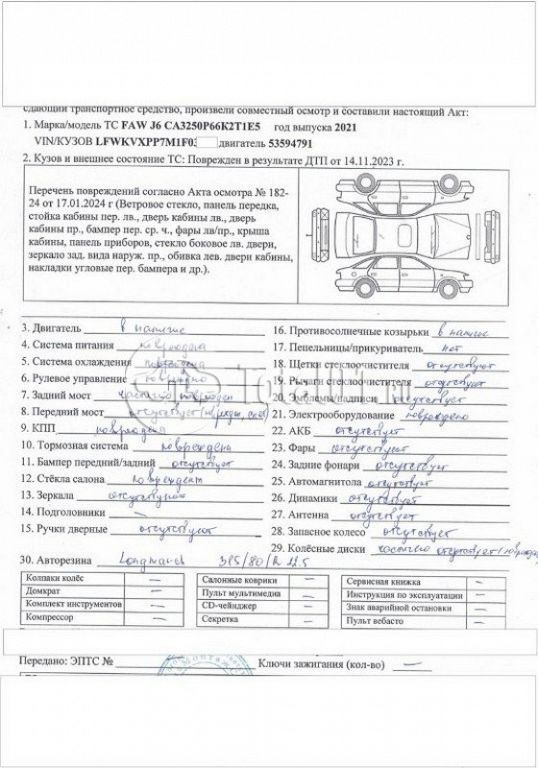 сдающий транспортное средство, произвели совместный осмотр и составили настоящий Акт:
1. Марка/модель ТС FAW J6 CA3250P66K2T1E5 год выпуска 2021
VIN/КУЗОВ LFWKVXPP7M1F0 двигатель 53594791
2. Кузов и внешнее состояние ТС: Поврежден в результате ДТП от 14.11.2023 г.
Перечень повреждений согласно Акта осмотра № 182-
24 от 17.01.2024 г (Ветровое стекло, панель передка,
стойка кабины пер. лв., дверь кабины лв., дверь
кабины пр., бампер пер. ср. ч., фары лв/пр., крыша
кабины, панель приборов, стекло боковое лв. двери,
зеркало зад. вида наруж. пр., обивка лев. двери кабины,
накладки угловые пер. бампера и др.).
3. Двигатель в наличие
4. Система питания повреждена
5. Система охлаждения повреждена
6. Рулевое управление повреждено
7. Задний мост частично поврежден
8. Передний мост отсутствует
9. КПП повреждена
10. Тормозная система повреждена
11. Бампер передний/задний отсутствует
12. Стёкла салона повреждены
13. Зеркала отсутствуют
14. Подголовники —
15. Ручки дверные отсутствуют
16. Противосолнечные козырьки в наличие
17. Пепельницы/прикуриватель нет
18. Щетки стеклоочистителя отсутствуют
19. Рычаги стеклоочистителя отсутствуют
20. Эмблемы/надписи отсутствует
21. Электрооборудование повреждено
22. АКБ отсутствует
23. Фары отсутствуют
24. Задние фонари отсутствуют
25. Автомагнитола отсутствует
26. Динамики отсутствуют
27. Антенна отсутствует
28. Запасное колесо отсутствует
29. Колёсные диски частично отсутствуют
30. Авторезина Longmarch 385/80/R 22.5
Колпаки колёс —
Домкрат —
Комплект инструментов —
Компрессор —
Салонные коврики —
Пульт мультимедиа —
CD-чейнджер —
Секретка —
Сервисная книжка —
Инструкция по эксплуатации —
Знак аварийной остановки —
Пульт вебасто —
Передано: ЭПТС № Ключи зажигания (кол-во) —